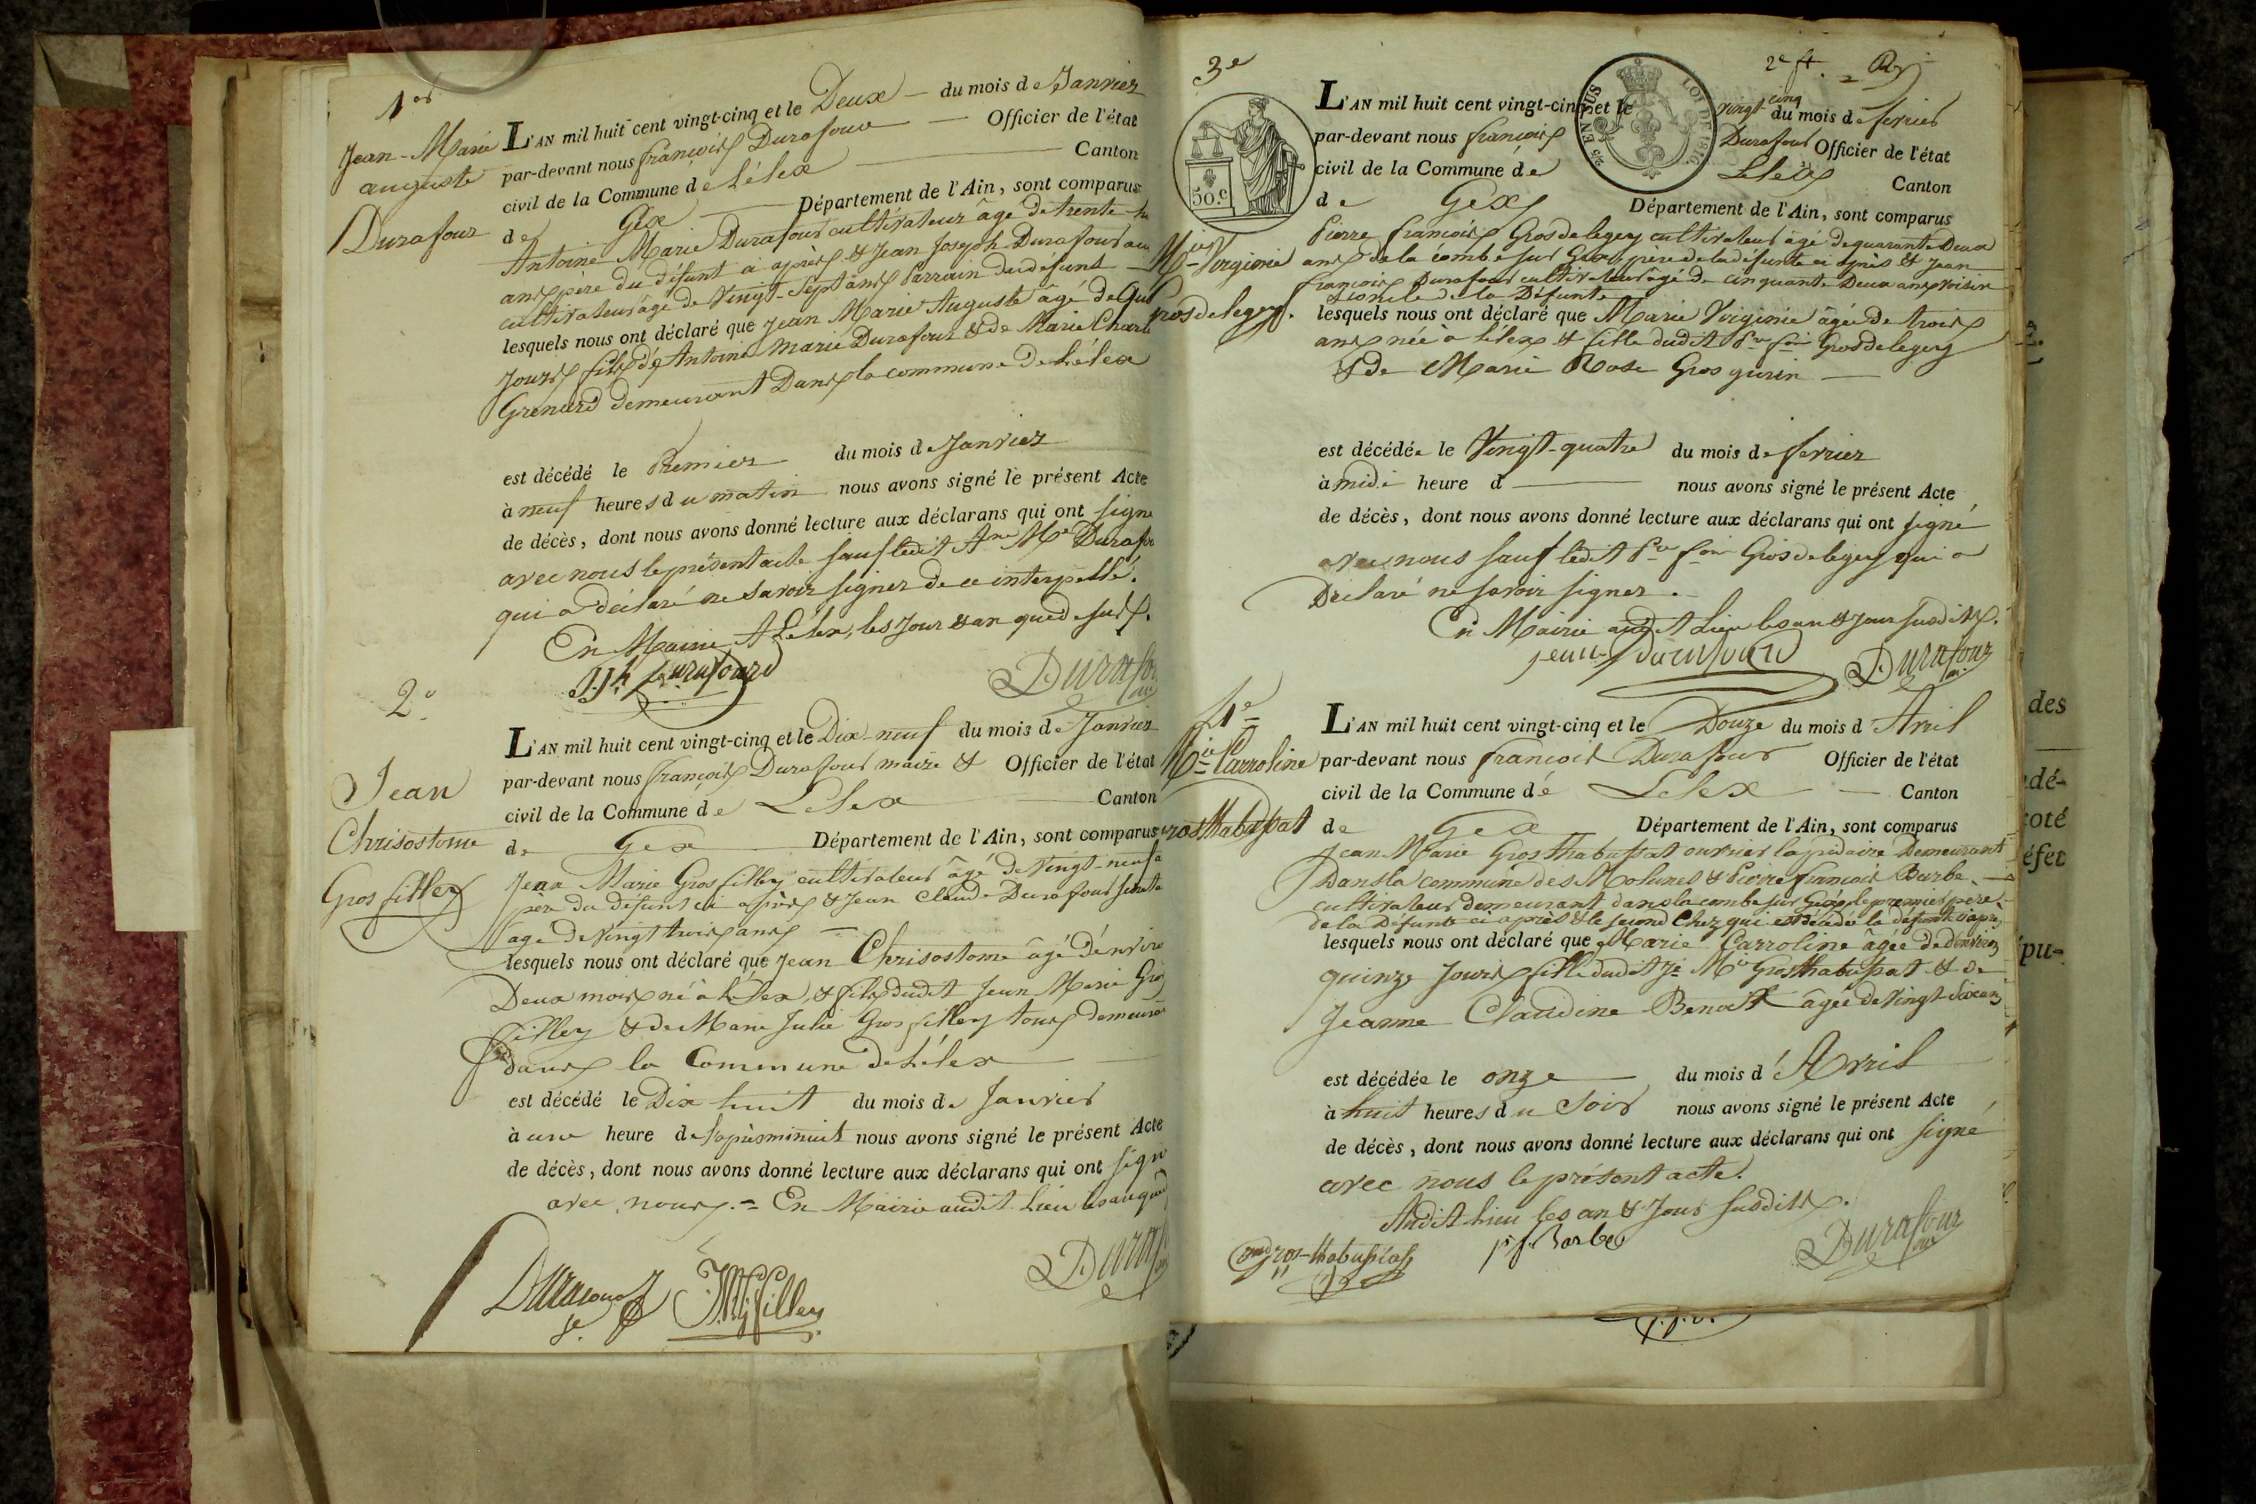 1er
Jean-Marie
auguste
Durafour
L'AN mil huit cent vingt-cinq et le Deux du mois de Janvier
par-devant nous françois Durafour Officier de l'état
civil de la Commune de Lélex Canton
de Gex Département de l'Ain, sont comparus
Antoine Marie Durafour cultivateur âgé de trente
ans père du défunt ci après & Jean Joseph Durafour
cultivateur âgé de Vingt-Sept ans Parrain dudéfunt
lesquels nous ont déclaré que Jean Marie Auguste âgé de
Jours fils de Antoine Marie Durafour & de Marie
Grenard demeurant Dans la commune de Lélex
est décédé le Premier du mois de Janvier
à neuf heures du matin nous avons signé le présent Acte
de décès, dont nous avons donné lecture aux déclarans qui ont signé
avec nous le présent acte sauf ledit Ane Mie
qui a déclaré ne savoir signer de ce interpellé.
En Mairie A Lélex, les Jour & an que dessus.
J.Jh Durafourd
2e
Jean
Chrisostome
Gros filley
L'AN mil huit cent vingt-cinq et le Dix-neuf du mois de Janvier
par-devant nous françois Durafour maire & Officier de l'état
civil de la Commune de Lelex Canton
de Gex Département de l'Ain, sont comparus
Jean Marie Gros filley cultivateur âgé de Vingt-neuf
père du défunt ci après & Jean Claude Durafour
age de vingt trois ans
lesquels nous ont déclaré que Jean Chrisostome âgé d'environ
Deux mois né à Lélex, & fils dudit Jean Marie Gros
filley & de Marie Julie Gros filley tous
dans la Commune de Lélex
est décédé le Dix huit du mois de Janvier
à une heure de l'après minuit nous avons signé le présent Acte
de décès, dont nous avons donné lecture aux déclarans qui ont signé
avec nous. = En Mairie audit Lieu
JMG filley
3e
2e ft.
50.c
25 EN SUS
LOI DE 1816
Mie Virginie
Grosdelegey.
L'AN mil huit cent vingt-cinq et le vingt cinq du mois de fevrier
par-devant nous françois Durafour Officier de l'état
civil de la Commune de Lelex Canton
de Gex Département de l'Ain, sont comparus
Pierre françois Grosdelegey cultivateur âgé de quarante Deux
ans de la combe sur Gex père de la défunte ci après & Jean
françois Durafour cultivateur âgé de cinquante Deux ans voisin
& oncle de la Défunte
lesquels nous ont déclaré que Marie Virginie âgée de trois
ans née à Lélex & fille dudit Pre fois Grosdelegey
& de Marie Rose Gros gurin
est décédée le Vingt-quatre du mois de fevrier
à midi heure d nous avons signé le présent Acte
de décès, dont nous avons donné lecture aux déclarans qui ont signé
avec nous sauf ledit Pre fois Grosdelegey qui a
Déclaré ne savoir signer.
En Mairie audit Lieu les an & Jour susdits.
jean durafourd Durafour
4e
Mie Carroline
Grosthabussat
L'AN mil huit cent vingt-cinq et le Douze du mois d'Avril
par-devant nous françois Durafour Officier de l'état
civil de la Commune de Lelex Canton
de Gex Département de l'Ain, sont comparus
Jean Marie Grosthabussat ouvrier lapidaire Demeurant
Dans la commune des Molunes & Pierre françois Barbe
cultivateur demeurant dans la combe sur Gex, le premier père
de la Défunte ci après & le second Chez qui est décédée la défunte
lesquels nous ont déclaré que Marie Carroline âgée d'environ
quinze jours fille dudit Jn Mie Grosthabussat & de
Jeanne Claudine Benoit âgée de Vingt-Six ans
est décédée le onze du mois d'Avril
à huit heures du Soir nous avons signé le présent Acte
de décès, dont nous avons donné lecture aux déclarans qui ont signé
avec nous le présent acte.
Audit Lieu les an & Jour susdits.
p f. Barbe
Durafour
des
coté